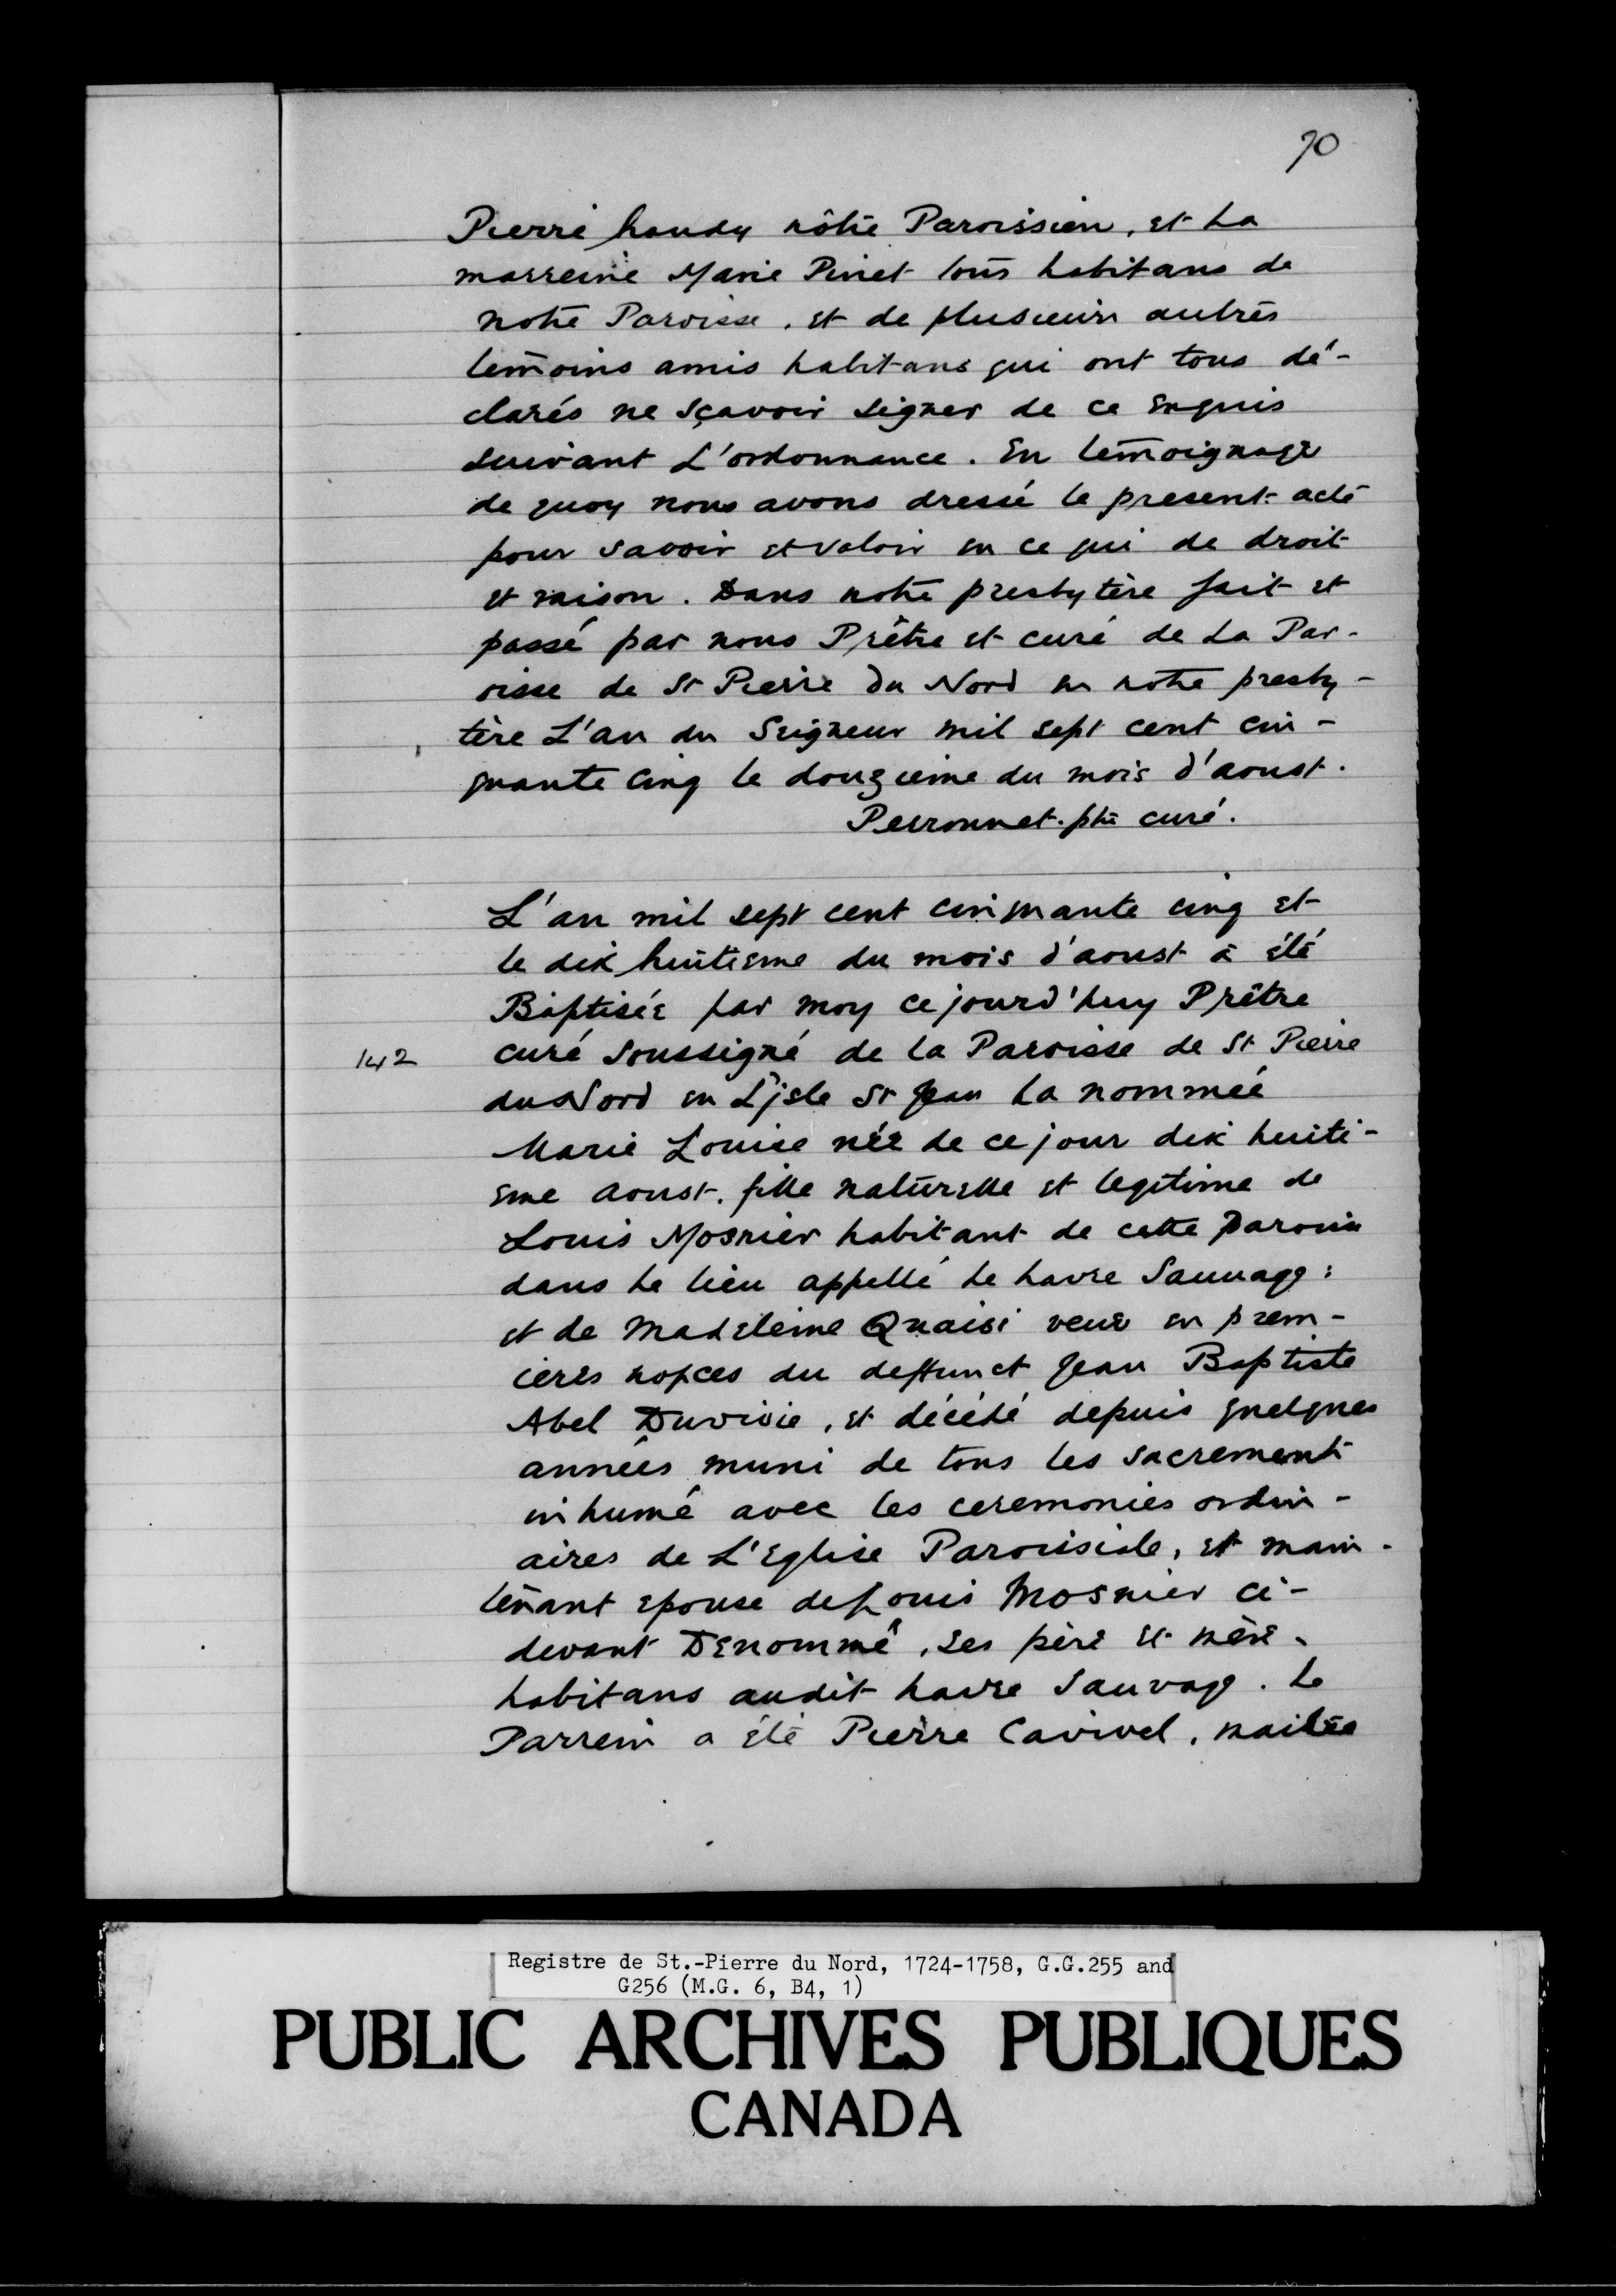 70
Pierre haudy nôtre Paroissien, et La
marreine Marie Pinet tous habitans de
notre Paroisse. et de plusieurs autres
temoins amis habitans qui ont tous dé-
clarés ne sçavoir signer de ce enquis
suivant L'ordonnance. En temoignage
de quoy nous avons dressé le present acte
pour savoir et valoir en ce qui de droit
et raison. Dans notre presbytère fait et
passé par nous Prêtre et curé de La Par-
oisse de St Pierre Du Nord en notre presby-
tère L'an du Seigneur mil sept cent cin-
quante cinq le douzieme du mois d'aoust.
Perronnet. ptre curé.
L'an mil sept cent cinquante cinq et
le dix huitieme du mois d'aoust à été
Baptisée par moy ce jourd'huy Prêtre
142 curé soussigné de la Paroisse de St Pierre
du Nord en L'jsle St Jean La nommée
Marie Louise née de ce jour dix huiti-
eme aoust. fille naturelle et legitime de
Louis Mosnier habitant de cette paroisse
dans Le lieu appellé Le havre Sauvage:
et de Madeleine Quaisi veuve en prem-
ieres nopces du deffunct Jean Baptiste
Abel Duvivie, et décédé depuis quelques
années muni de tous les sacrements
inhumé avec les ceremonies ordin-
aires de L'Eglise Paroissiale, et main-
tenant epouse de Louis Mosnier ci-
devant Denommé, ses père et mère.
habitans audit havre Sauvage. Le
Parrein a été Pierre Carivel,
Registre de St.-Pierre du Nord, 1724-1758, G.G.255 and
G256 (M.G. 6, B4, 1)
PUBLIC ARCHIVES PUBLIQUES
CANADA